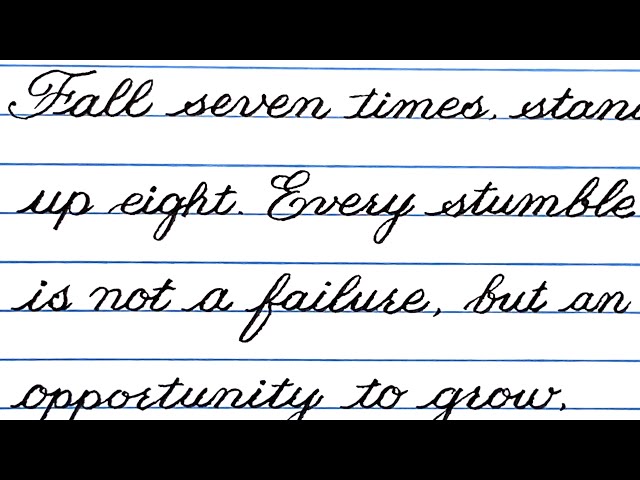 Fall seven times, stand
up eight. Every stumble
is not a failure, but an
opportunity to grow.